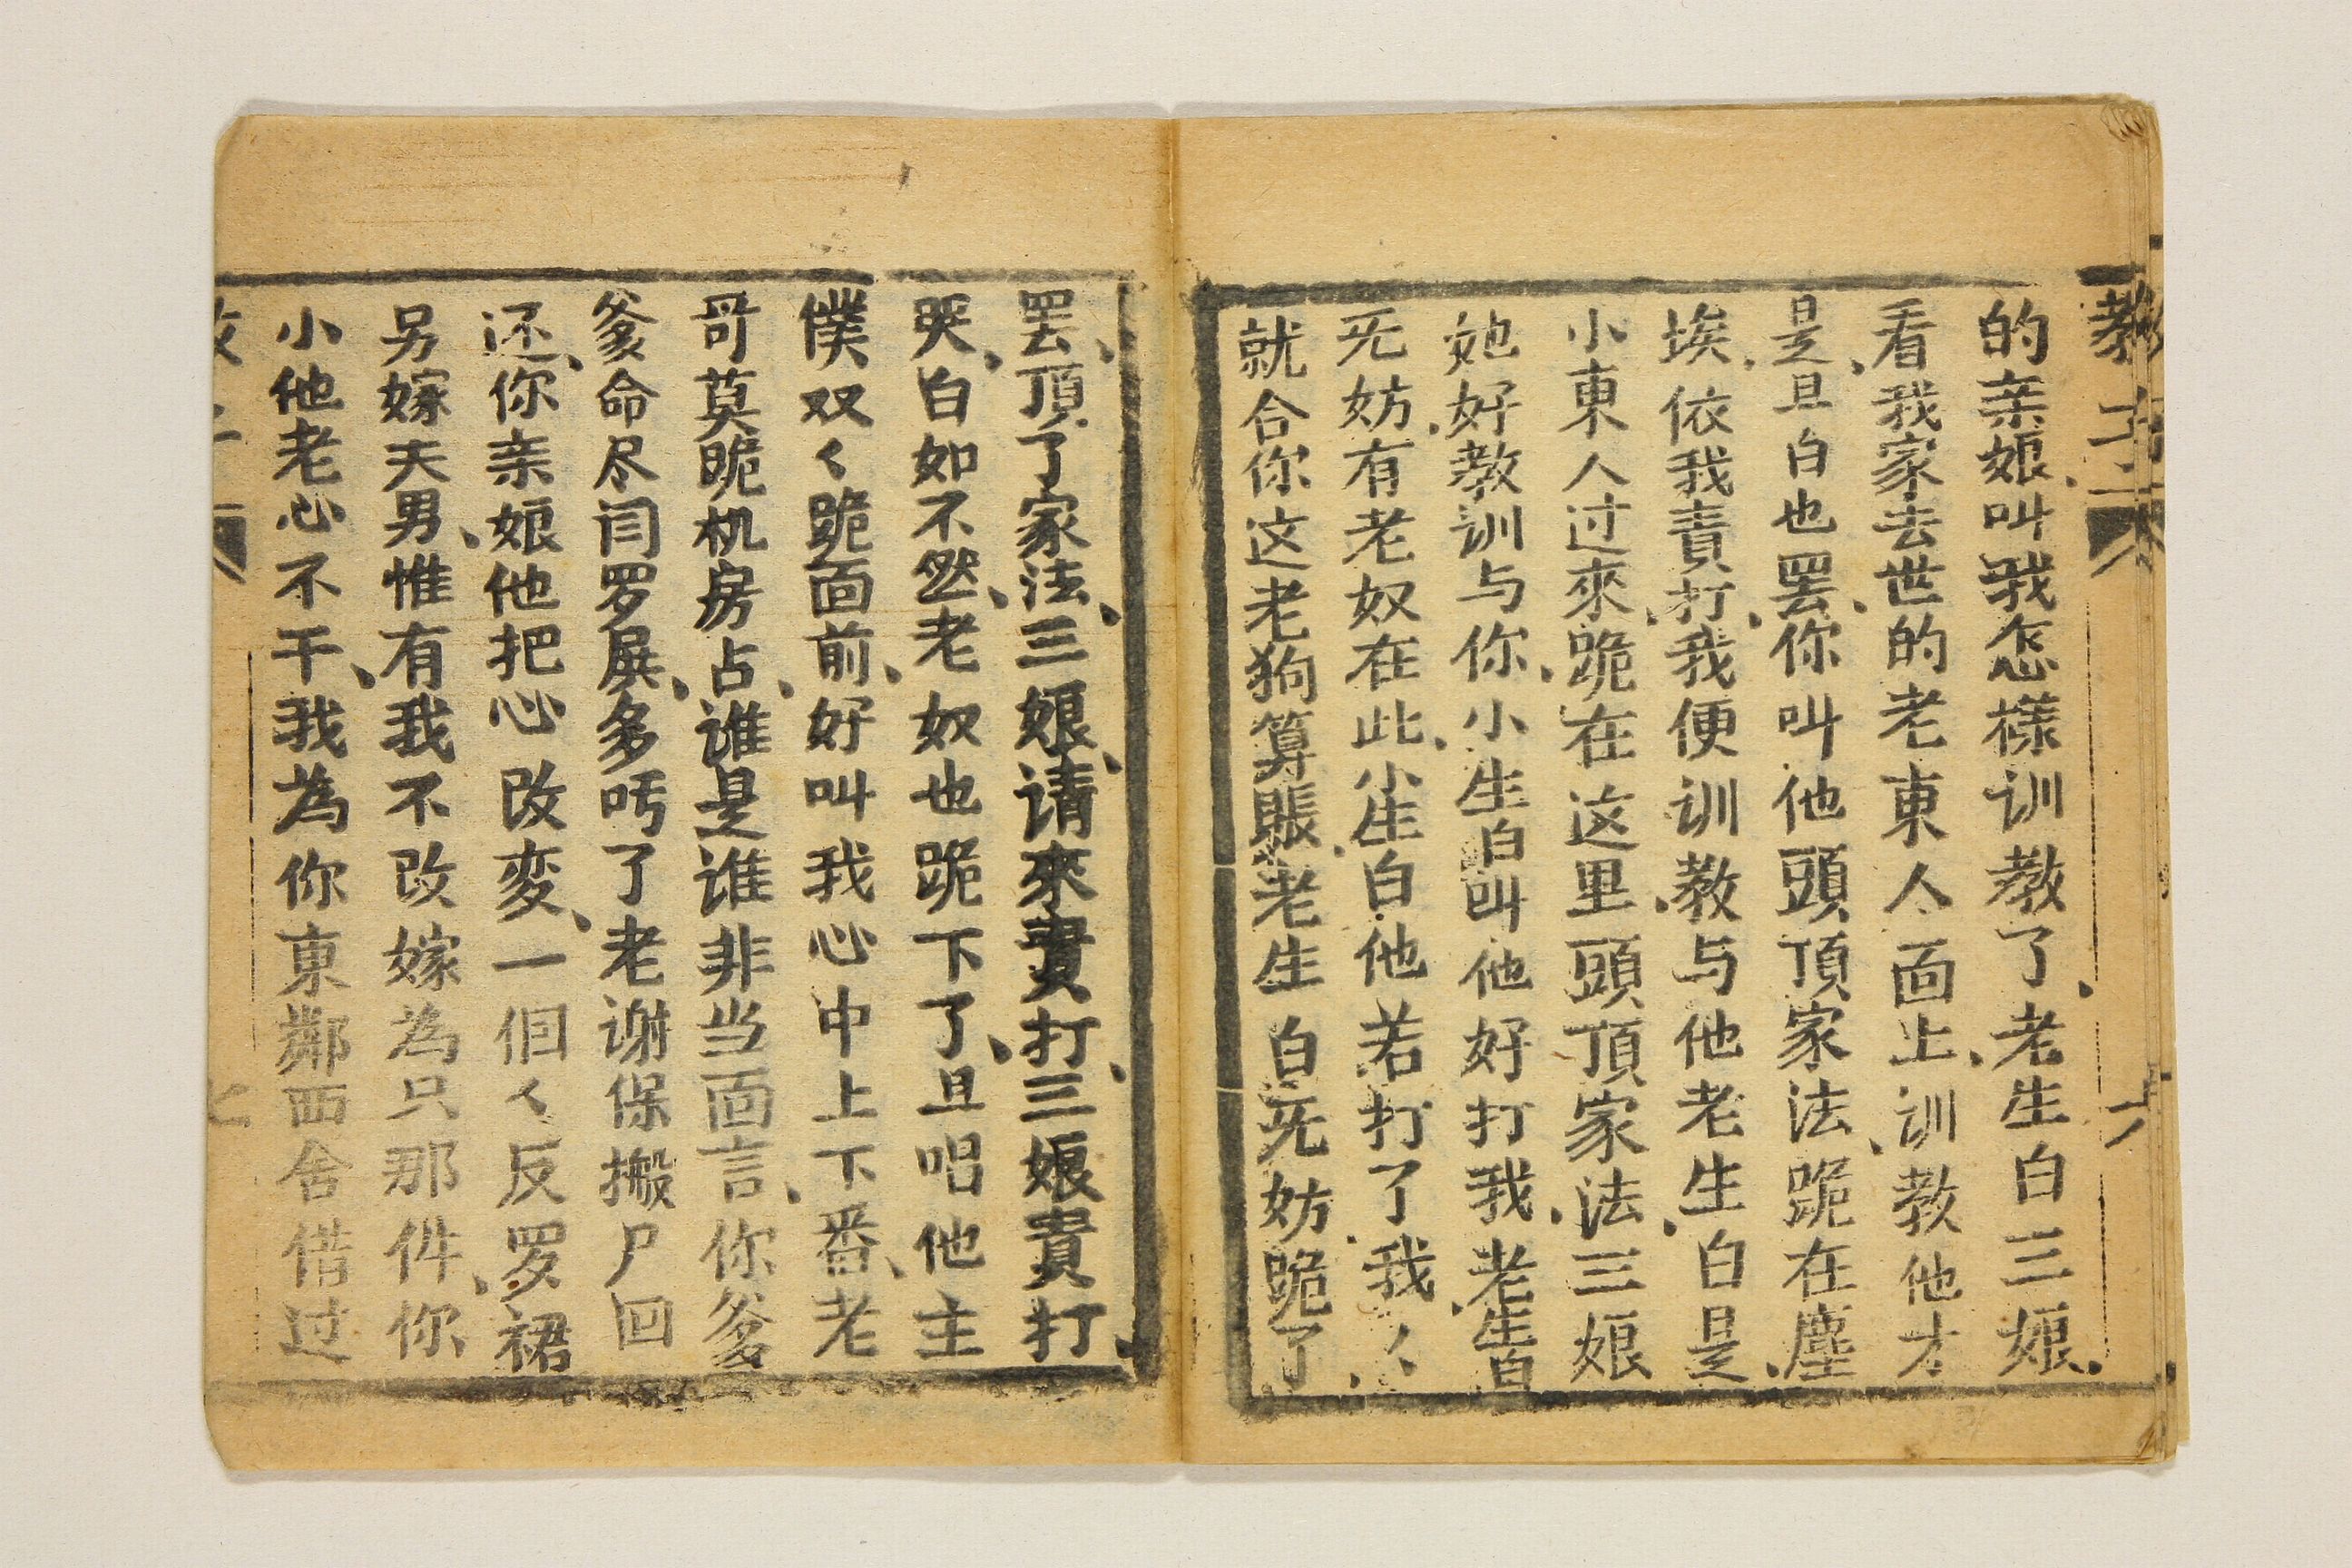 教子 六
的亲娘叫我怎樣训教了老生白三娘
看我家去世的老東人面上训教他才
是旦白也罢你叫他頭頂家法跪在塵
埃依我責打我便训教与他老生白是
小東人过來跪在这里頭頂家法三娘
她好教训与你小生白叫他好打我老生白
旡妨有老奴在此小生白他若打了我〱
就合你这老狗算賬老生白旡妨跪了
罢頂了家法三娘请來責打三娘責打
哭白如不然老奴也跪下了旦唱他主
僕双〱跪面前好叫我心中上下番老
哥莫跪机房占谁是谁非当面言你爹
爹命尽闫罗展多吗了老谢保搬尸回
还你亲娘他把心改变一個〱反罗裙
另嫁夫男惟有我不改嫁為只那件你
小他老心不干我為你東鄰西舍借过
七